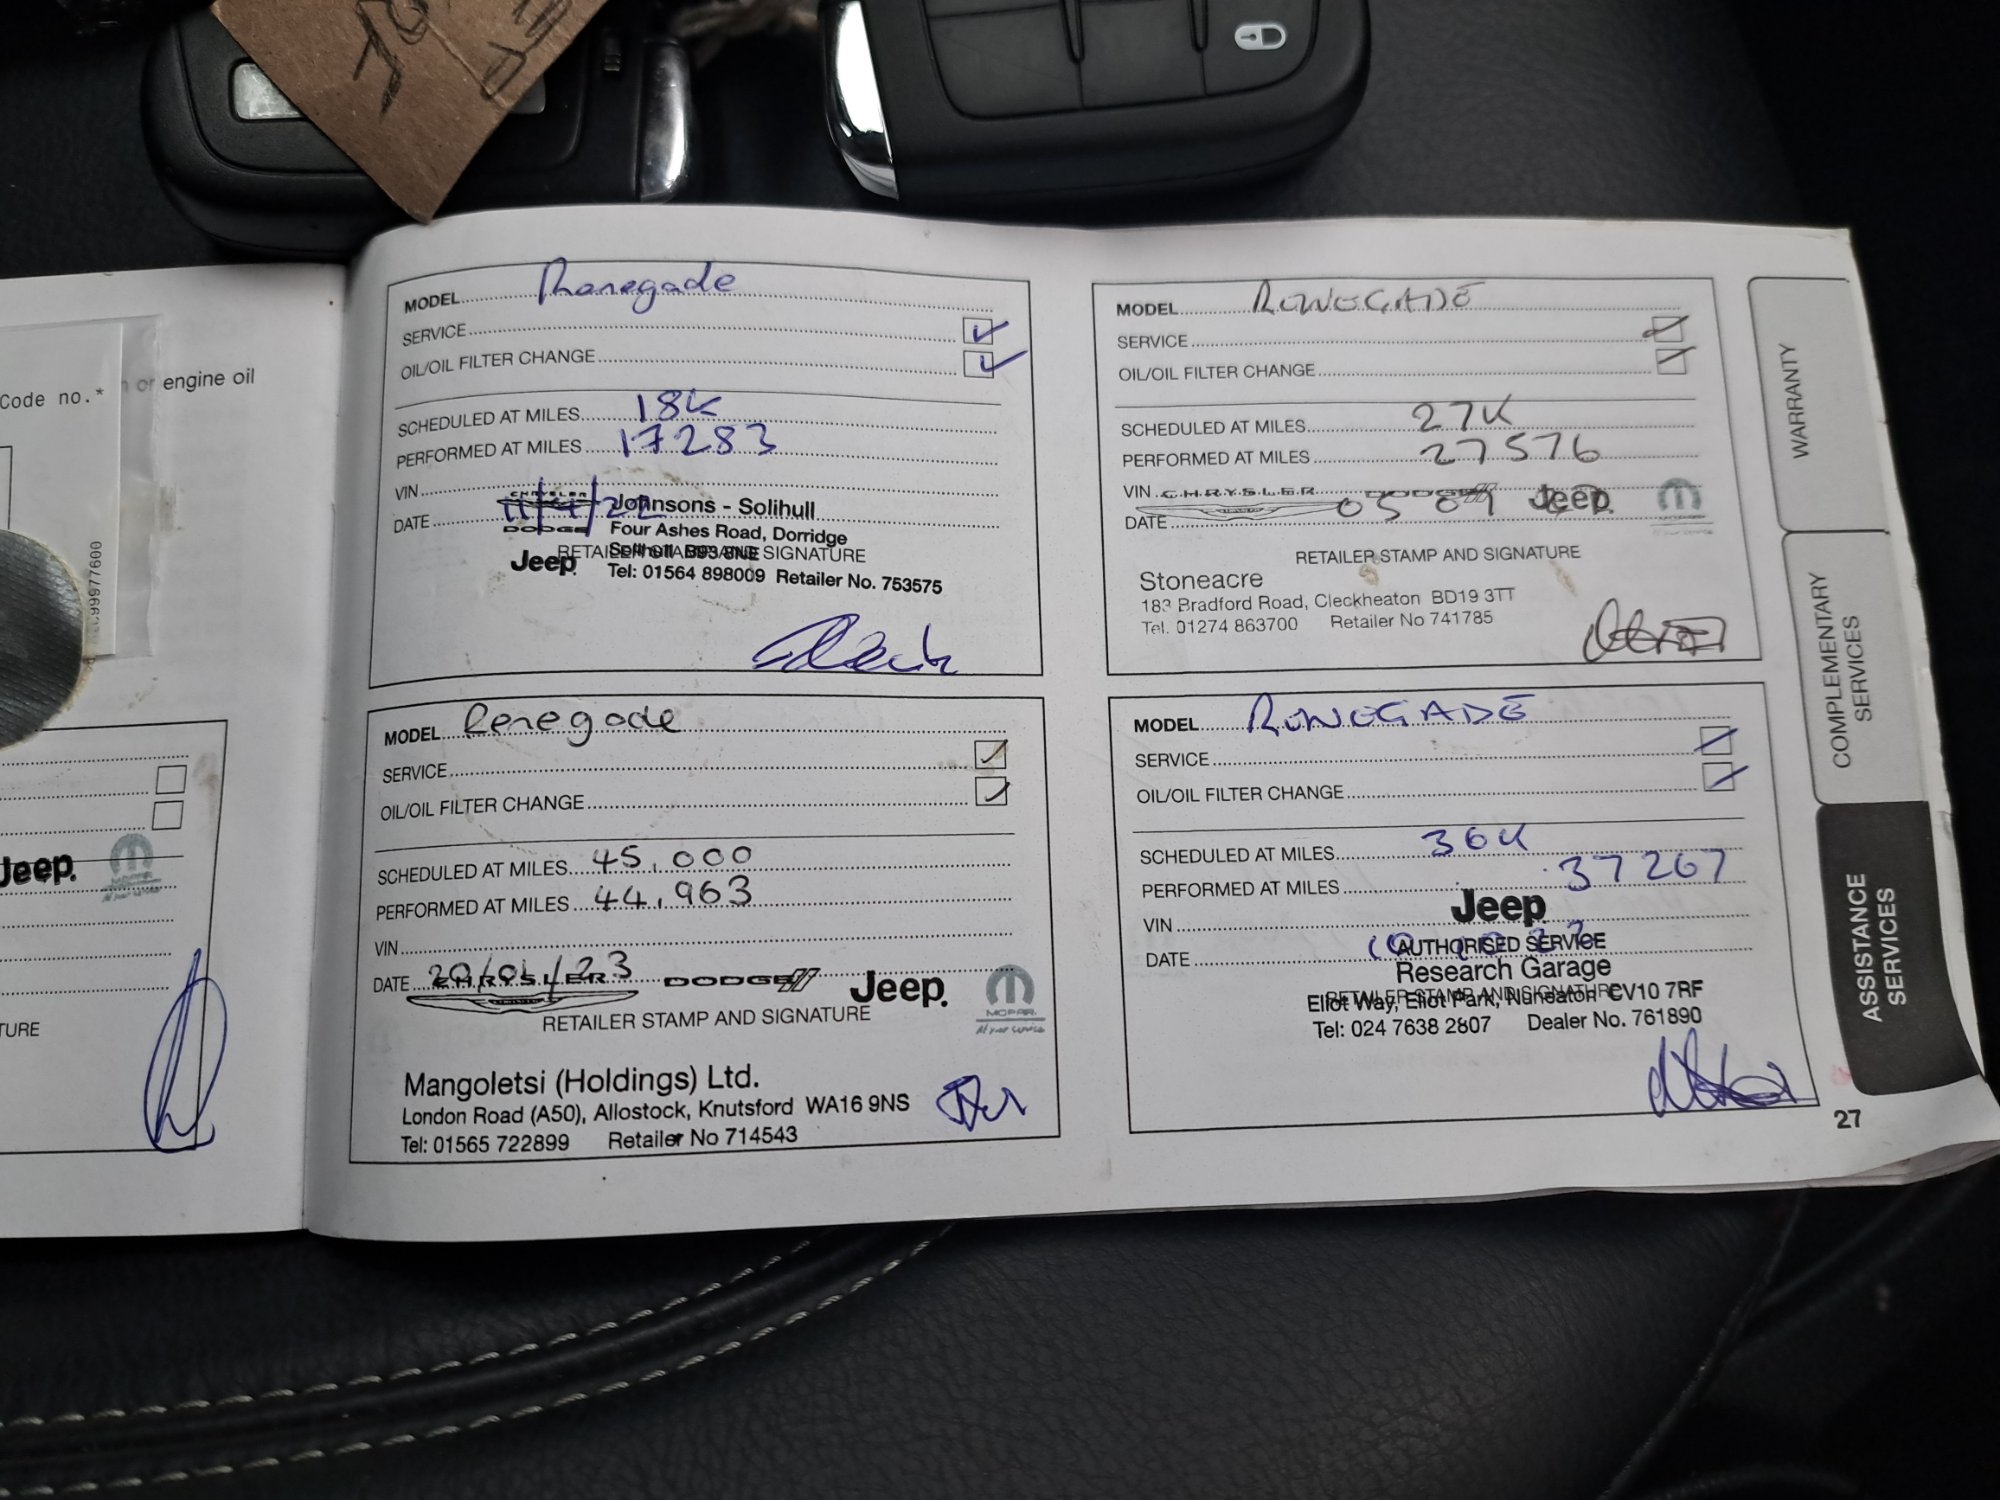 Code no.*
n or engine oil
Jeep
MOPAR
TURE
MODEL Renegade
SERVICE
OIL/OIL FILTER CHANGE
SCHEDULED AT MILES 18K
PERFORMED AT MILES 17283
VIN
CHRYSLER
Johnsons - Solihull
DATE 11/4/22
DODGE
Four Ashes Road, Dorridge
Solihull B93 8NE
RETAILER STAMP AND SIGNATURE
Jeep
Tel: 01564 898009 Retailer No. 753575
MODEL RENEGADE
SERVICE
OIL/OIL FILTER CHANGE
SCHEDULED AT MILES 27K
PERFORMED AT MILES 27576
VIN
CHRYSLER DODGE Jeep
DATE 05 09
RETAILER STAMP AND SIGNATURE
Stoneacre
183 Bradford Road, Cleckheaton BD19 3TT
Tel. 01274 863700 Retailer No 741785
MODEL Renegade
SERVICE
OIL/OIL FILTER CHANGE
SCHEDULED AT MILES 45,000
PERFORMED AT MILES 44,963
VIN
DATE 20/01/23
CHRYSLER DODGE Jeep
MOPAR
At your service
RETAILER STAMP AND SIGNATURE
Mangoletsi (Holdings) Ltd.
London Road (A50), Allostock, Knutsford WA16 9NS
Tel: 01565 722899 Retailer No 714543
MODEL RENEGADE
SERVICE
OIL/OIL FILTER CHANGE
SCHEDULED AT MILES 36K
PERFORMED AT MILES 37267
Jeep
VIN
DATE
AUTHORISED SERVICE
Research Garage
RETAILER STAMP AND SIGNATURE
Eliot Way, Eliot Park, Nuneaton CV10 7RF
Tel: 024 7638 2807 Dealer No. 761890
WARRANTY
COMPLEMENTARY
SERVICES
ASSISTANCE
SERVICES
27